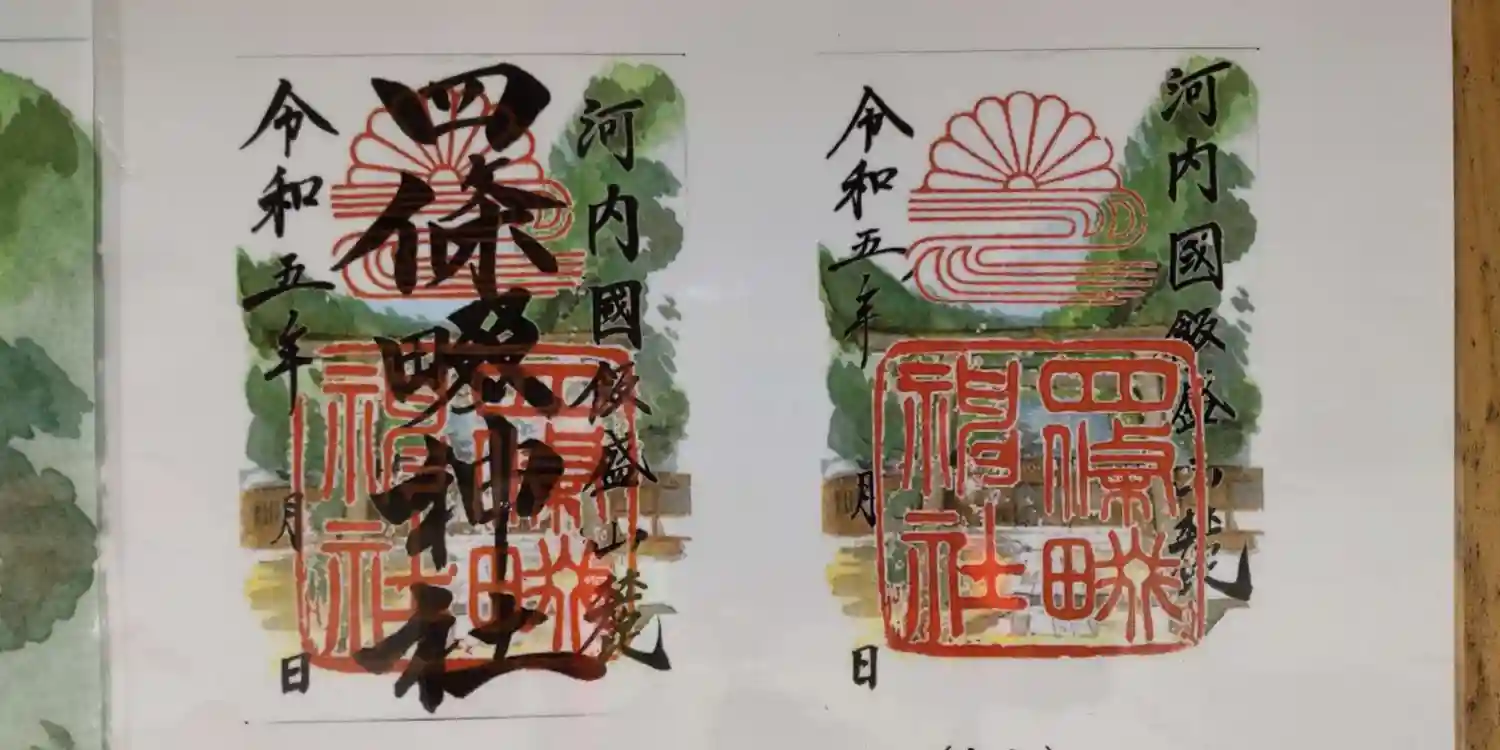 河内國飯盛山麓
四條畷神社
四條畷
神社
令和五年 月 日
河内國飯盛山麓
四條畷
神社
令和五年 月 日